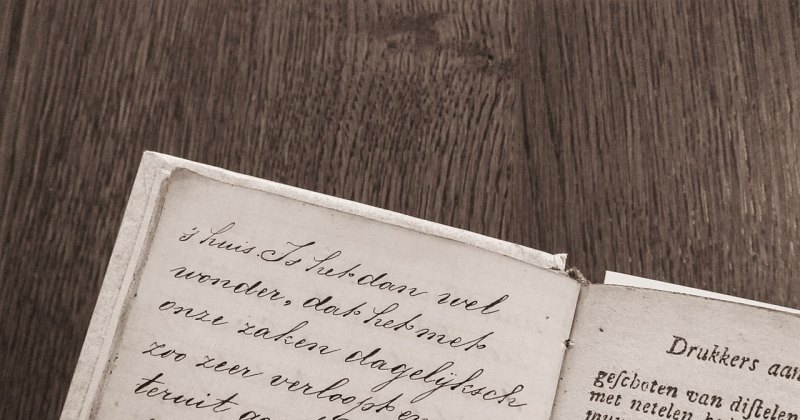 's huis. Is het dan wel
wonder, dat het met
onze zaken dagelijksch
zoo zeer verloopt en
teruit
Drukkers aan
geschoten van distelen
met netelen